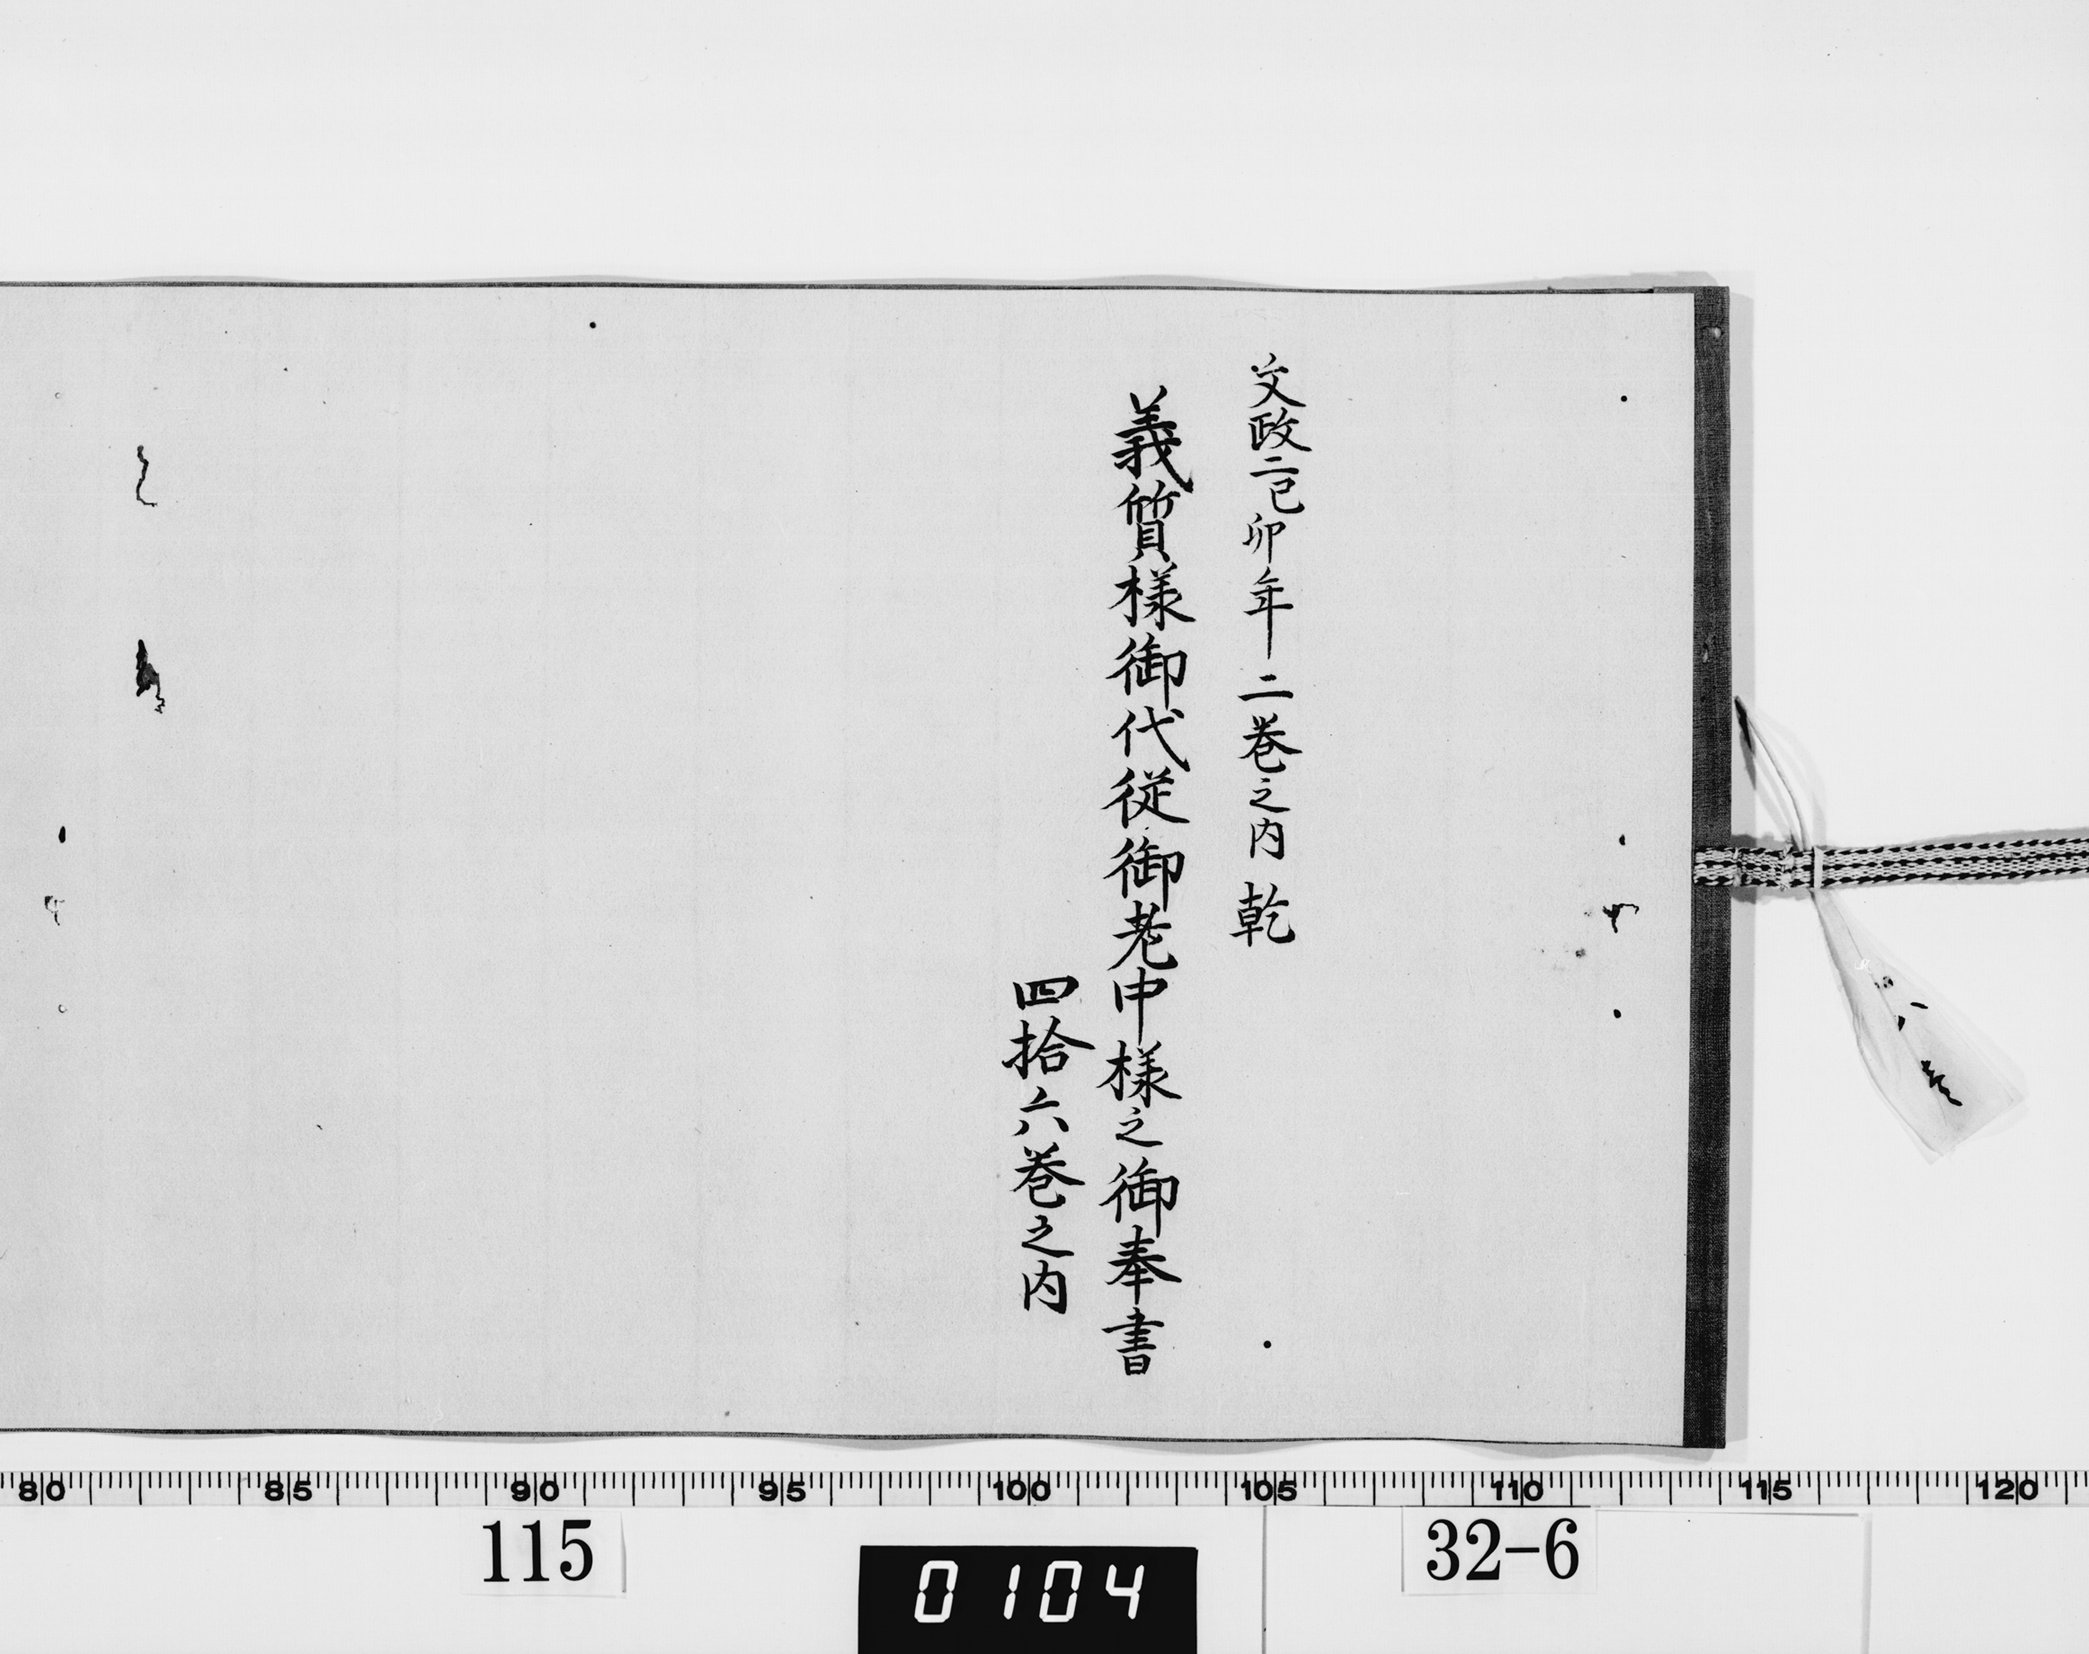 文政二己卯年二巻之内 乾
義質様御代従御老中様之御奉書
四拾六巻之内
80 85 90 95 100 105 110 115 120
115
0104
32-6